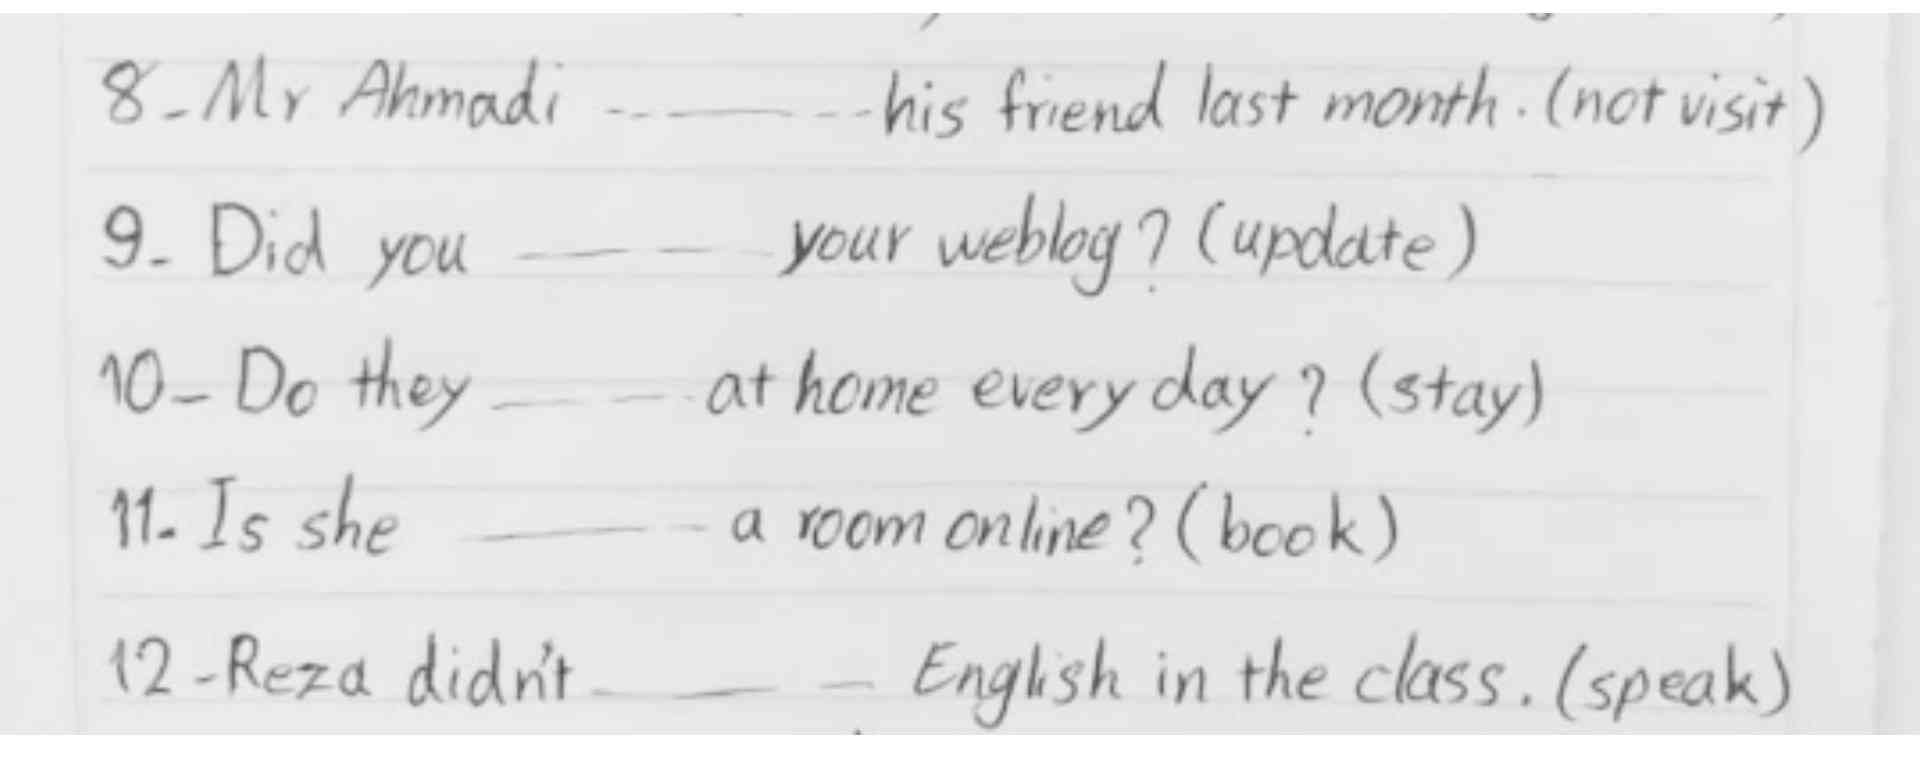 8-Mr Ahmadi ------- his friend last month. (not visit)
9- Did you ------- your weblog? (update)
10- Do they ------- at home every day? (stay)
11- Is she ------- a room online? (book)
12-Reza didn't ------- English in the class. (speak)